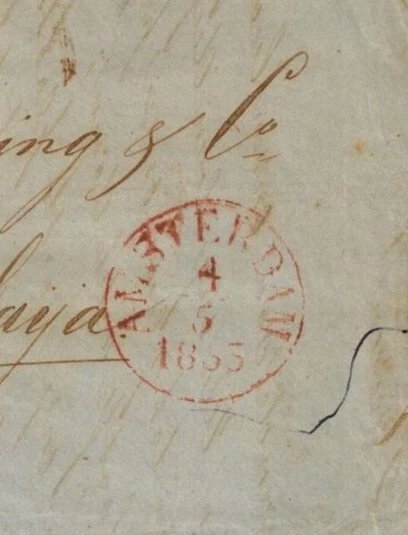 ing & Co
aya
AMSTERDAM
4
5
1855